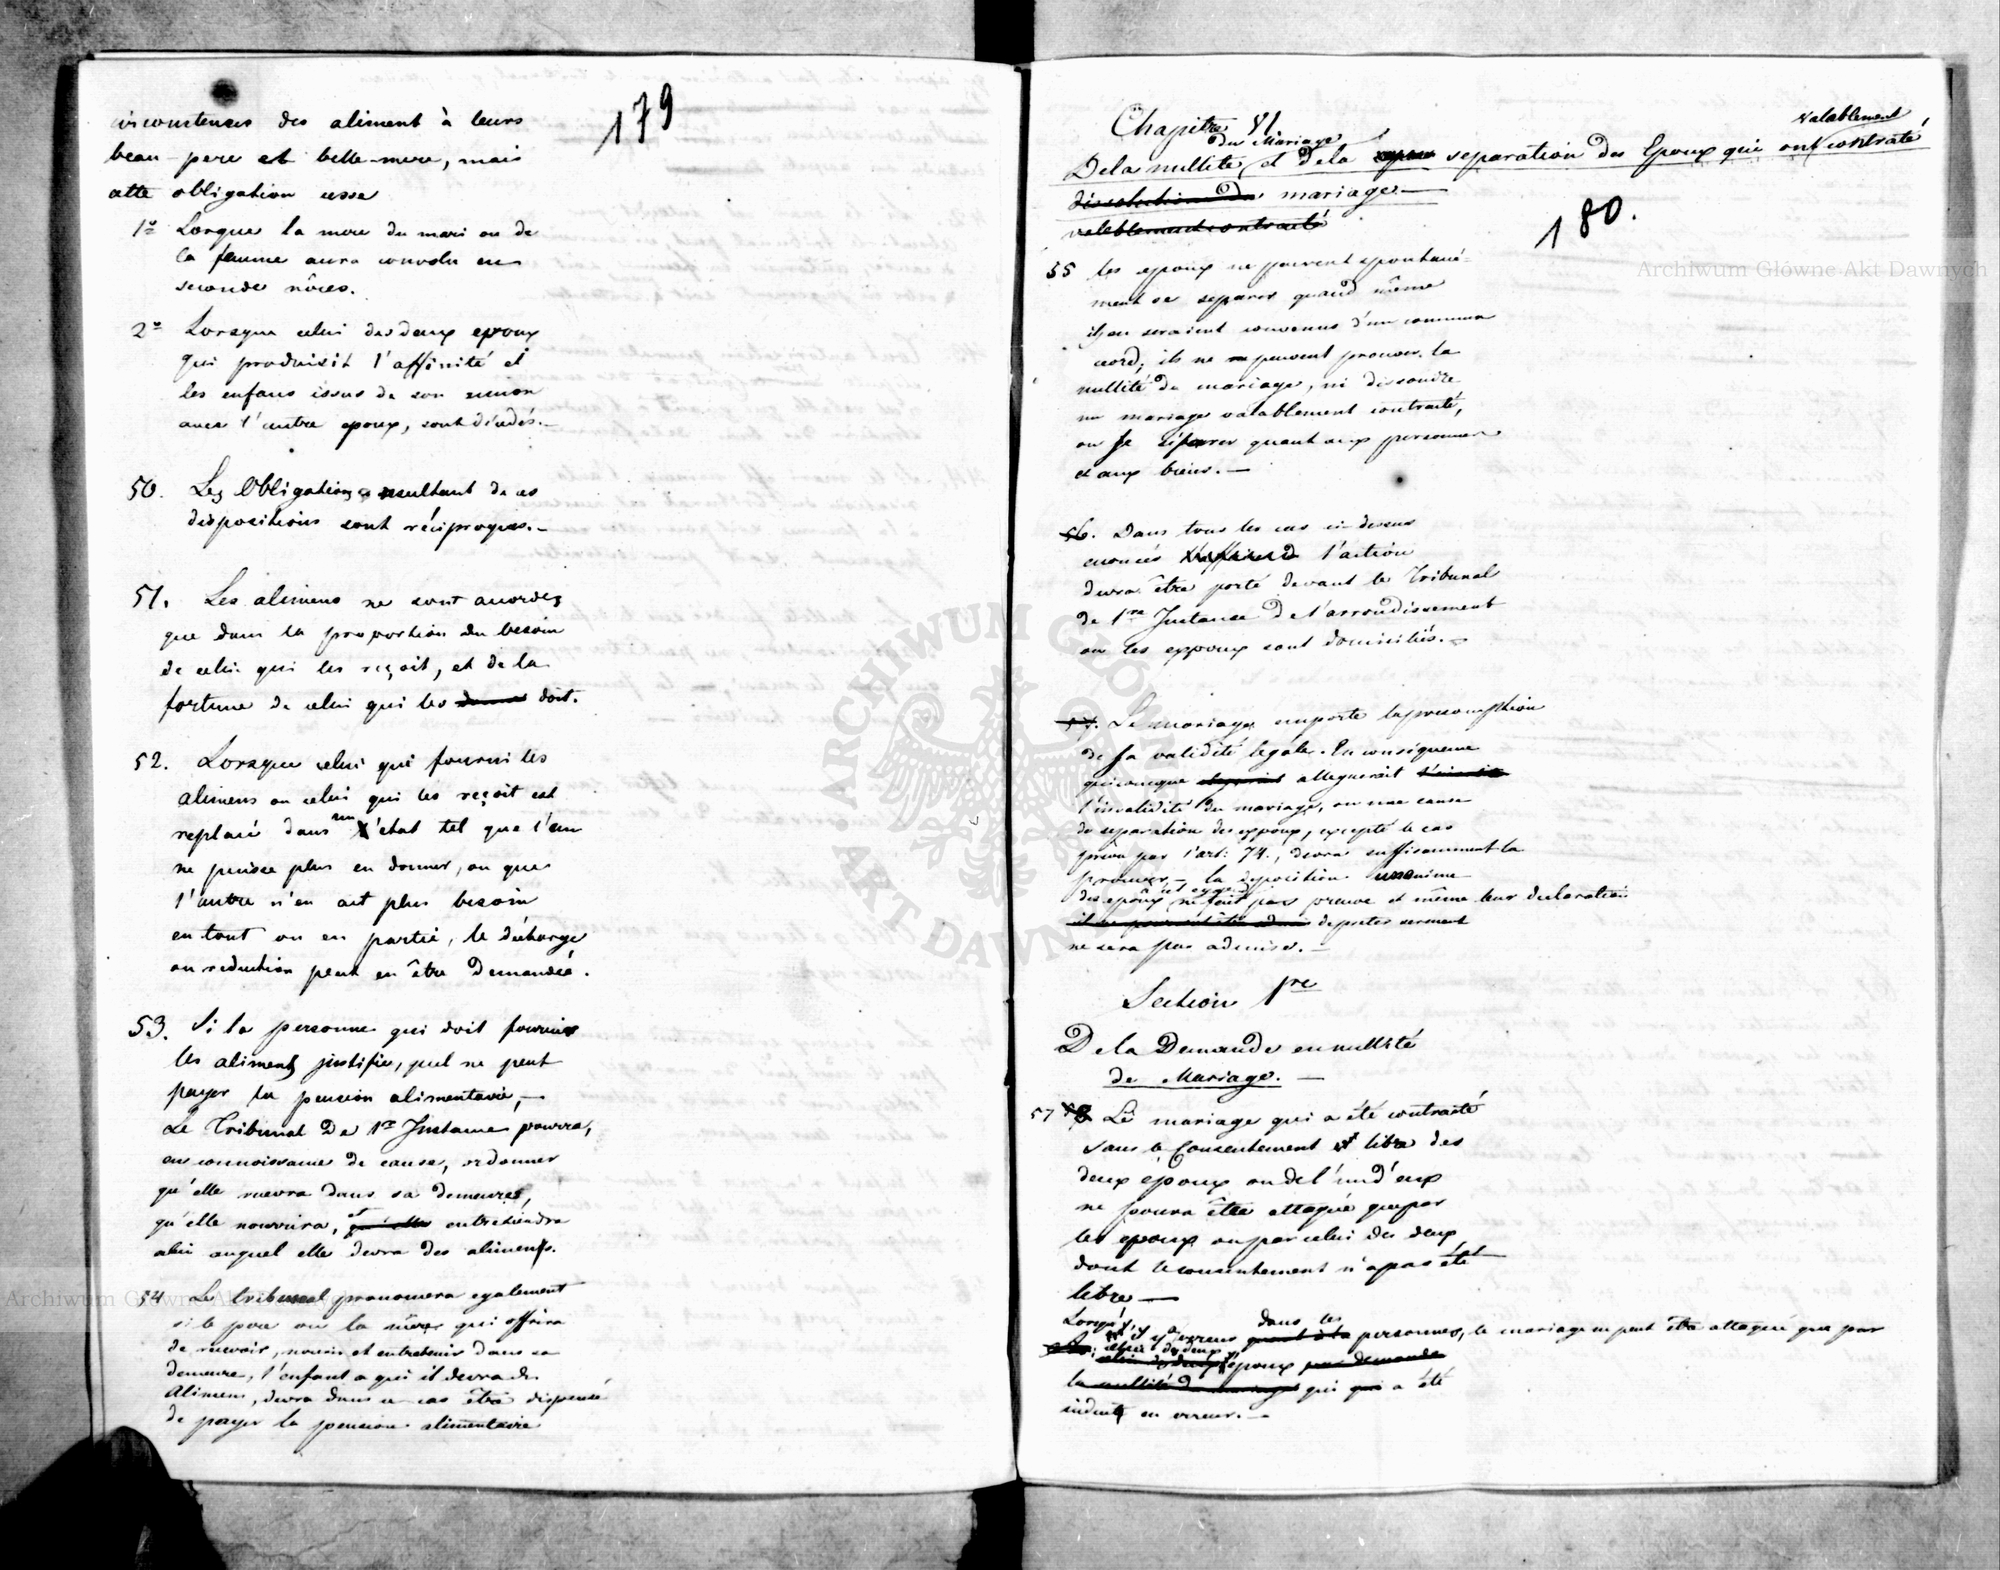 179
circonstences des aliment à leurs
beau-pere et belle-mere, mais
cette obligation cesse
1º Lorsque la mere du mari ou de
la femme aura convolu en
seconde nôces.
2º Lorsque celui des deux epoux
qui produisit l'affinité et
les enfans issus de son union
avec l'autre epoux, sont décédés.
50. Les Obligations resultant de ces
dispositions sont réciproques.
51. Les alimens ne sont accordes
que dans la proportion du besoin
de celui qui les reçoit, et de la
fortune de celui qui les doit.
52. Lorsque celui qui fourni les
alimens ou celui qui les reçoit est
replacé dans un état tel que l'un
ne puisse plus en donner, ou que
l'autre n'en ait plus besoin
en tout ou en partie, le décharge
ou reduction peut en être demandée.
53. Si la personne qui doit fournir
les aliments justifie, qu'el ne peut
payer la pension alimentaire,
Le Tribunal De 1re Instance pourra,
en connoissance de cause, ordonner
qu'elle recevra dans sa demeure,
qu'elle nourrira, et qu'elle entretiendra
celui auquel elle devra des aliments.
54 Le tribunal prononcera egalement
si le pere ou la mère qui offrira
de recevoir, nourrir et entretenir dans sa
demeure, l'enfant a qui il devra des
Alimens, devra dans ce cas être dispensé
de payer la pension alimentaire
Chapitre VI
180.
De la nullité du Mariage et De la separation des Epoux qui ont valablement contracté
dissolution du mariage
valablement contracté
55 les epoux ne peuvent spontané-
ment se separer quand même
ils en seraient convenus d'un commun
cord; ils ne peuvent prouver la
nullité du mariage, ni dissoudre
un mariage valablement contracté,
ou se séparer quant aux personnes
et aux biens.
56. Dans tous les cas ci-dessus
enoncés l'action
devra être porté devant le Tribunal
de 1re Instance De l'arrondissement
ou les eppoux sont domiciliés.
57. Le mariage emporte la presomption
de sa validité legale. En consequence
quiconque alleguerait
l'invalidité du mariage, ou une cause
de separation des eppoux, excepté le cas
prévu par l'art: 74., devra suffisamment la
prouver, la deposition unanime
des epoux ne fait pas preuve et même leur declaration
de preter serment
ne sera pas admise.
Section 1re
De la Demande en nullité
de Mariage.
57 Le mariage qui a été contracté
sans le Consentement libre des
deux époux ou de l'un d'eux
ne poura être attaqué que par
les epoux ou par celui des deux
dont le consentement n'a pas été
libre
Lorsqu'il y a erreur dans les personnes, le mariage ne peut être attaqué que par
celui des deux epoux par demande
la nullité du mariage qui a été
induit en erreur.